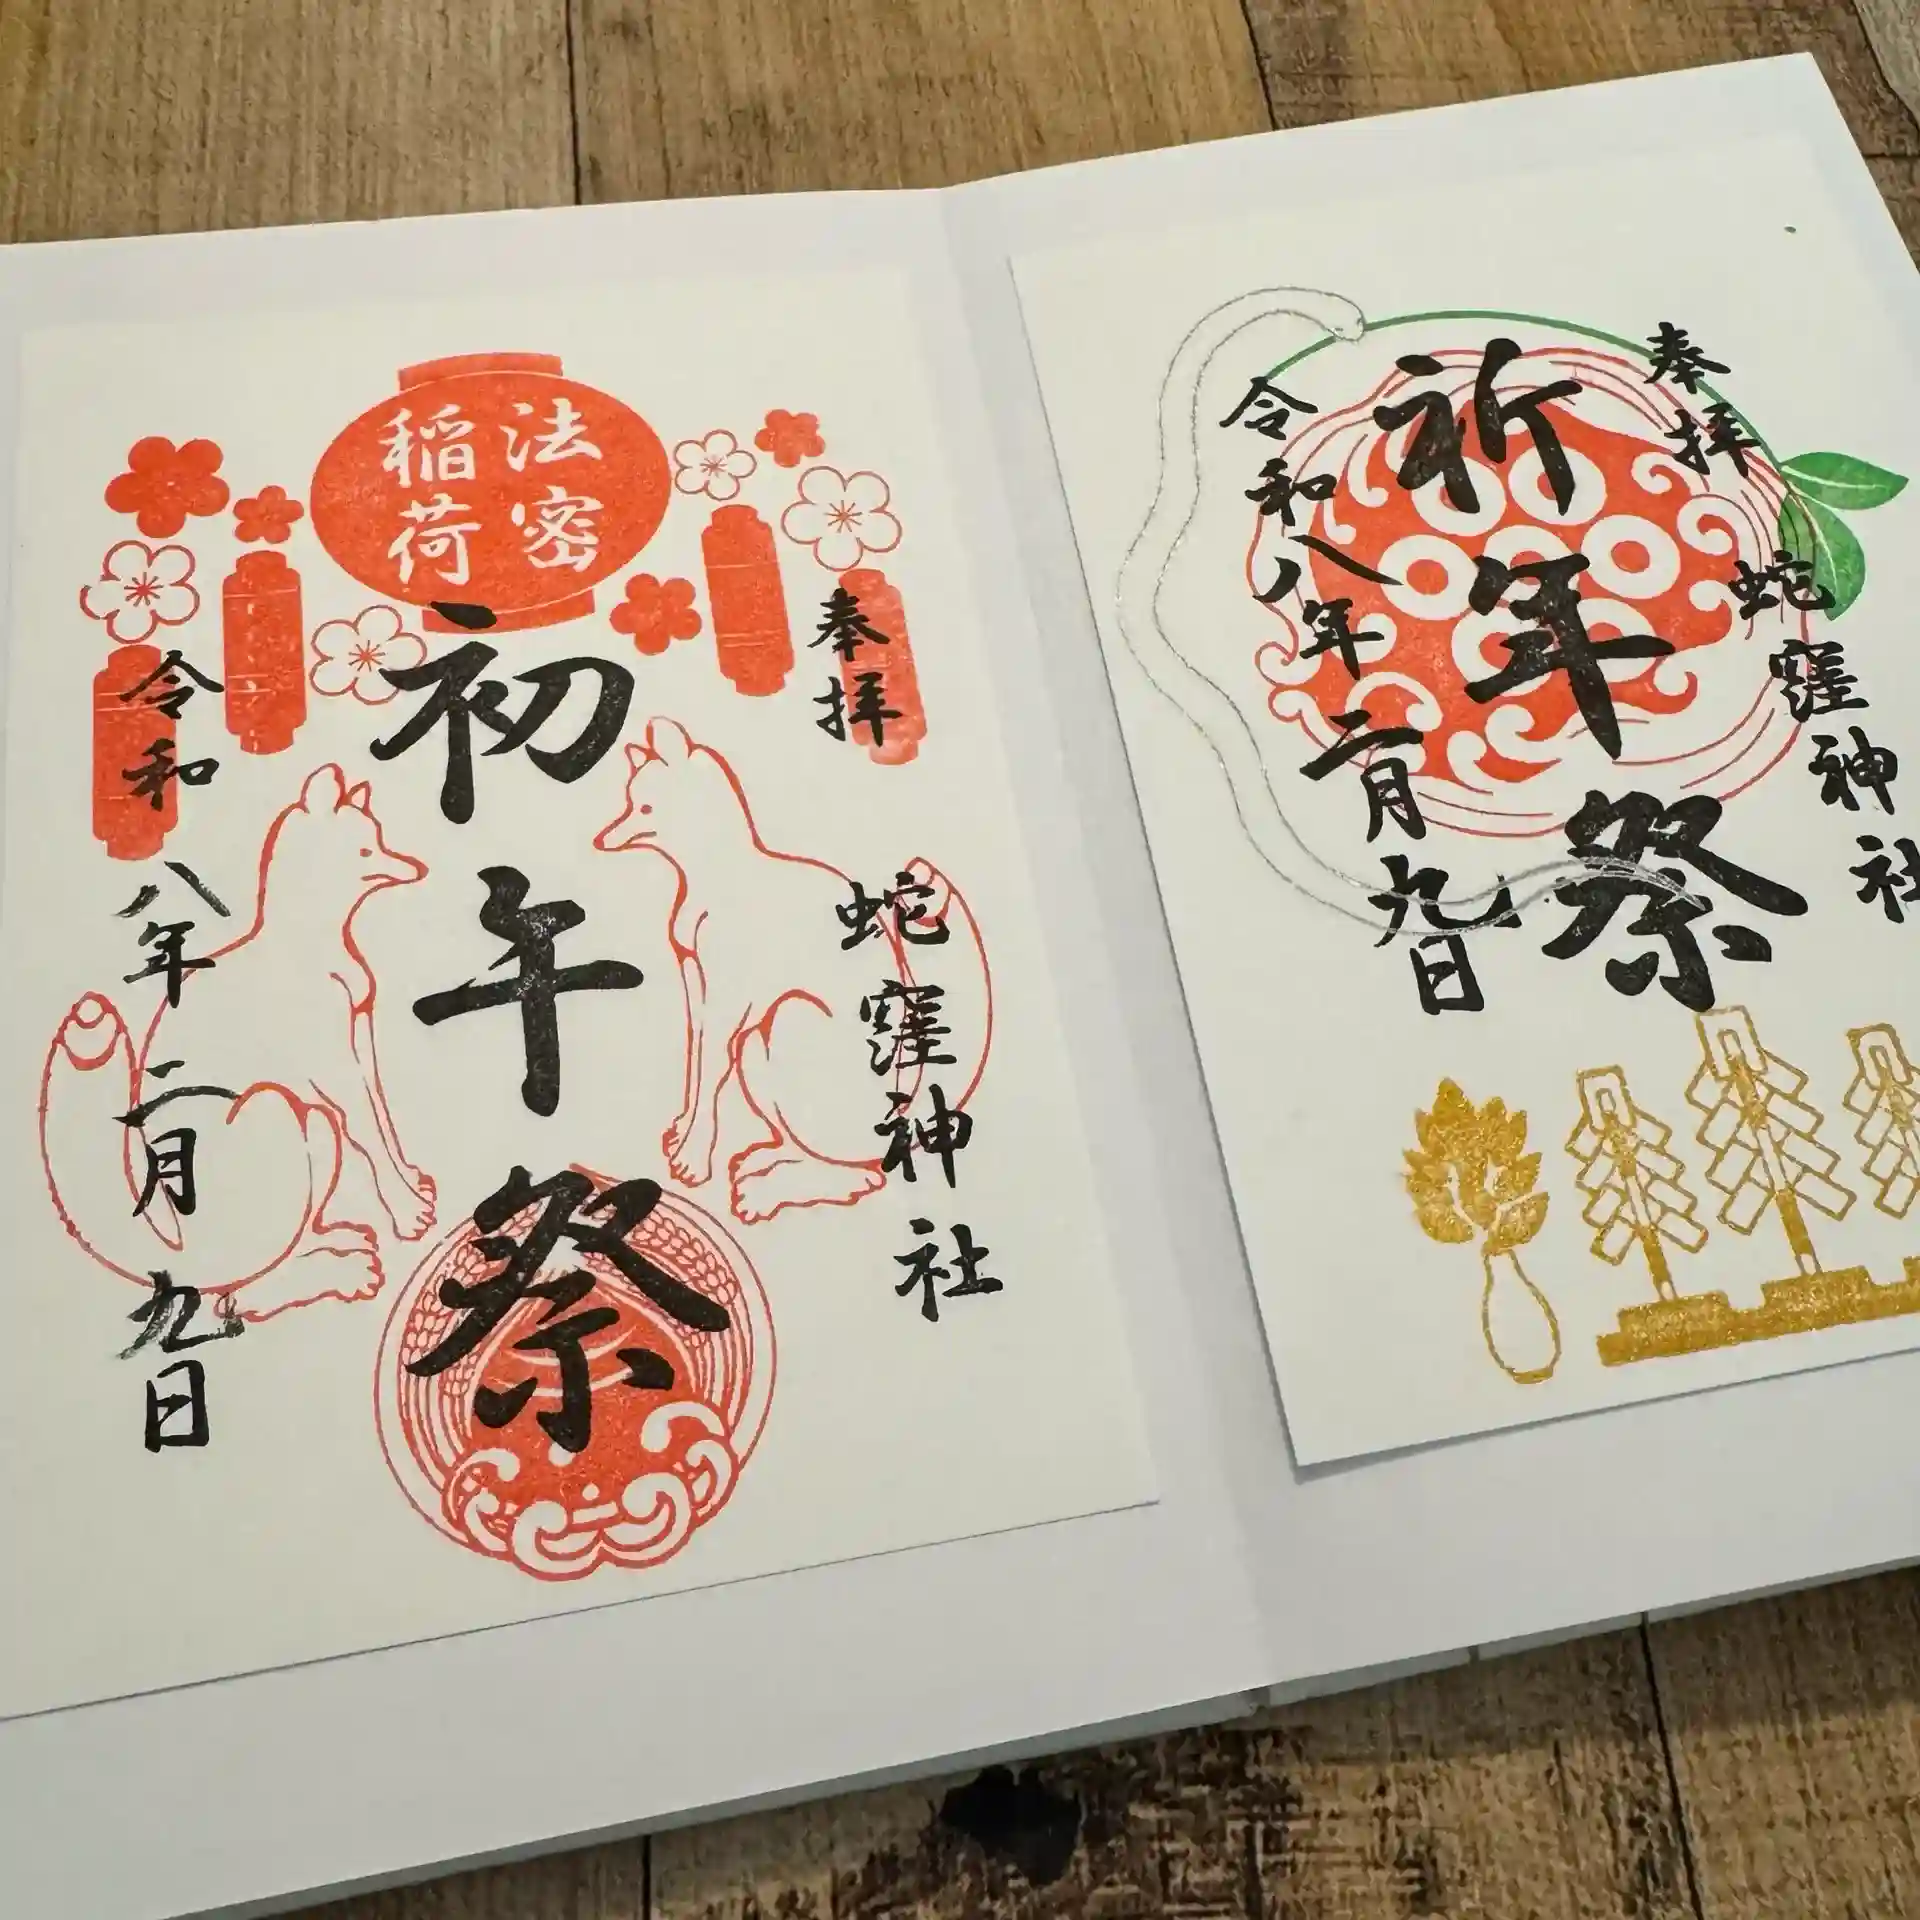 奉拝
蛇窪神社
法密
稲荷
初午祭
令和八年二月九日
奉拝
蛇窪神社
祈年祭
令和八年二月九日